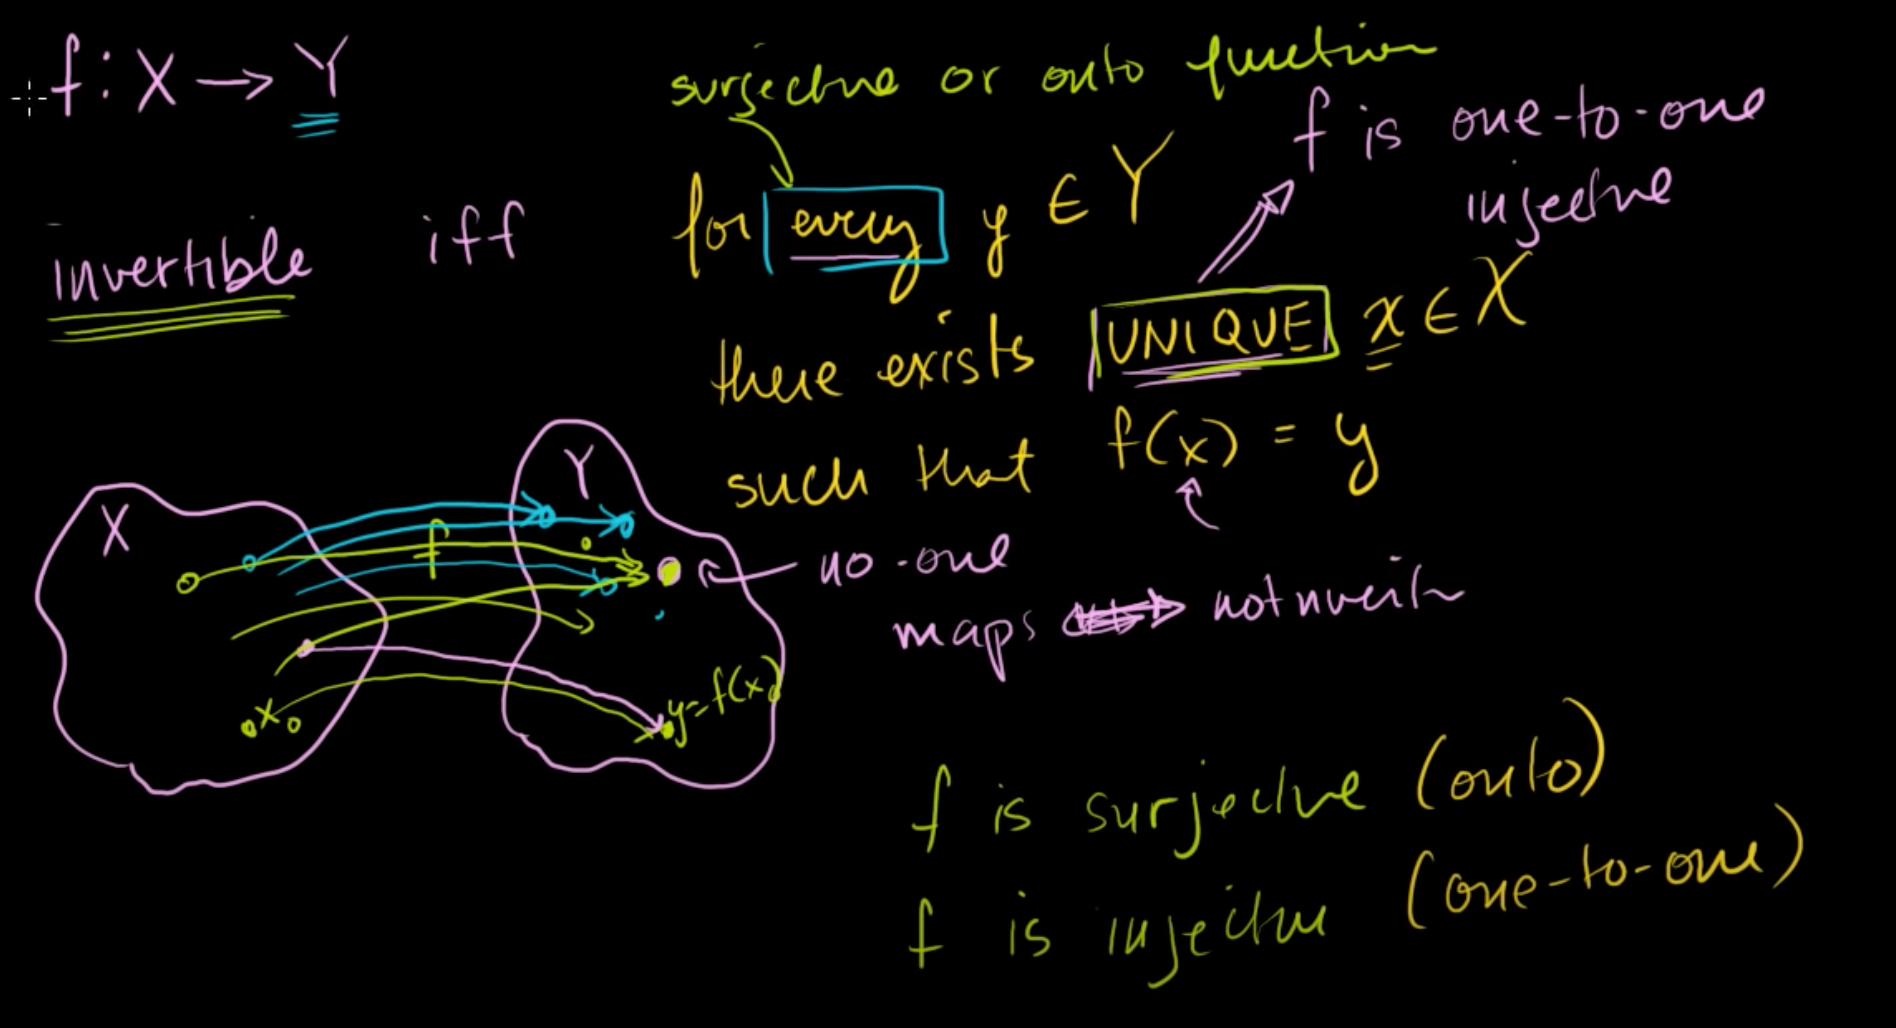 f : X → Y
surjective or onto function
f is one-to-one
injective
invertible iff
for every y ∈ Y
there exists UNIQUE x ∈ X
such that f(x) = y
X
Y
f
no-one
maps ⇒ not
x₀
y=f(x₀)
f is surjective (onto)
f is injective (one-to-one)